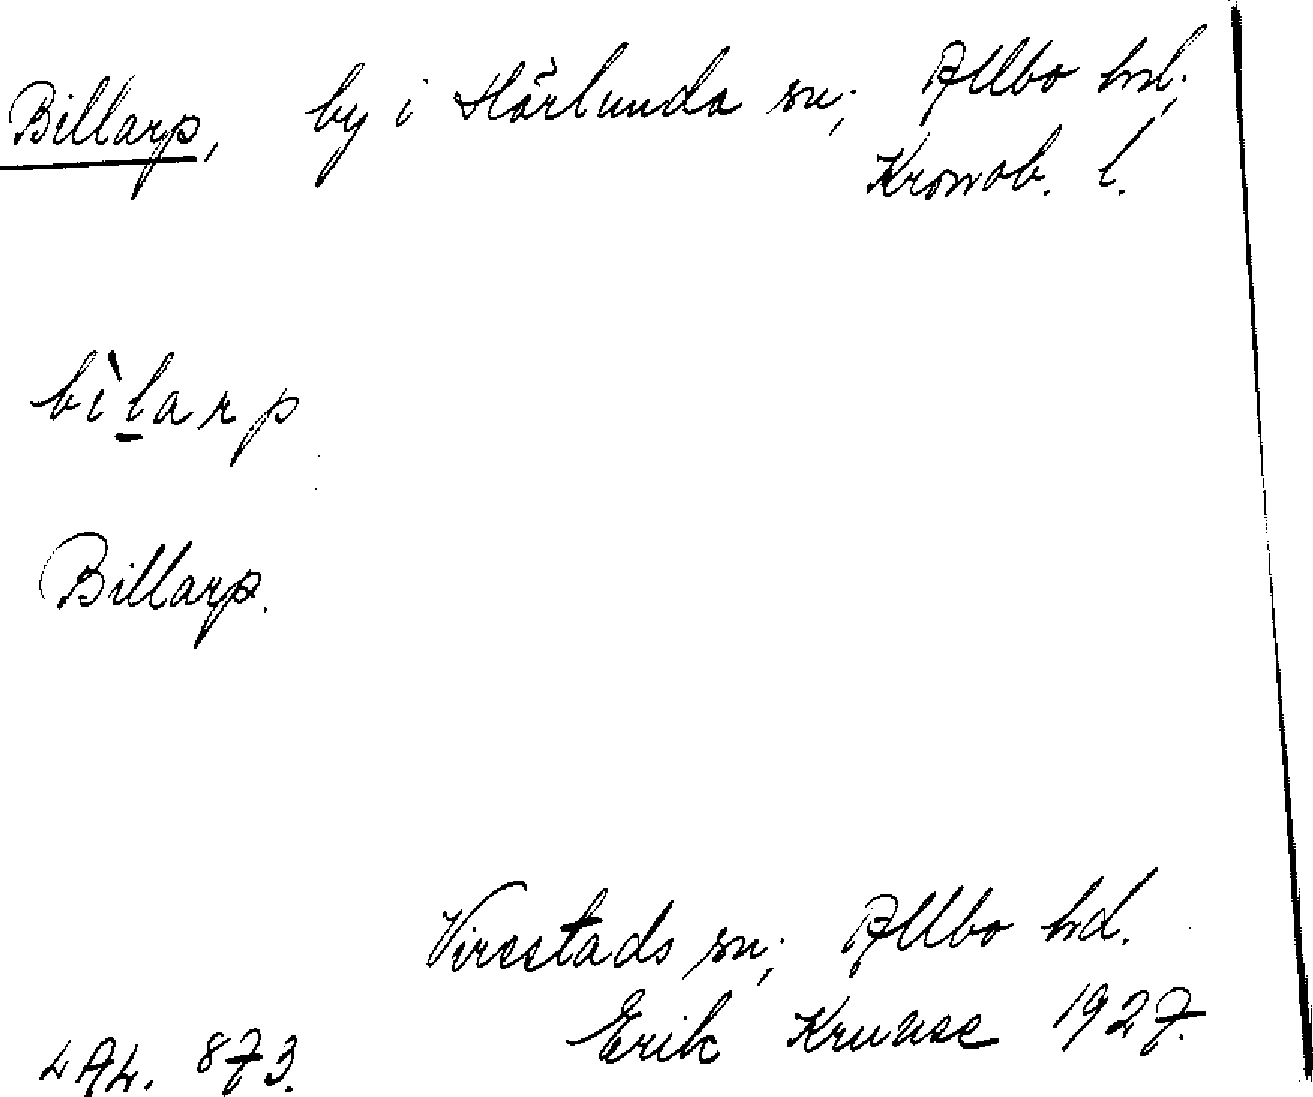 Billarp, by i Härlunda sn; Allbo hd;
Kronob. l.
bìl̲arp
Billarp.
Virestads sn; Allbo hd.
Erik 1927.
LAL. 873.